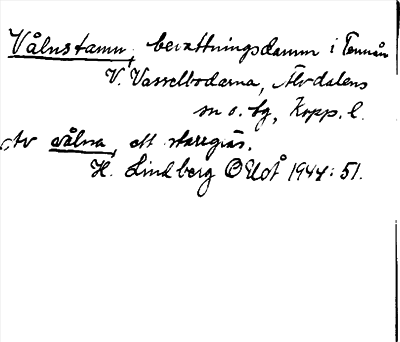 Vålnstamn, bevattningsdamm i Tennån
V. Vasselbodarna, Älvdalens
sn o. hg, Kopp. l.
Av vålna, ett starrgräs.
H. Lindberg OUoÅ 1947: 51.